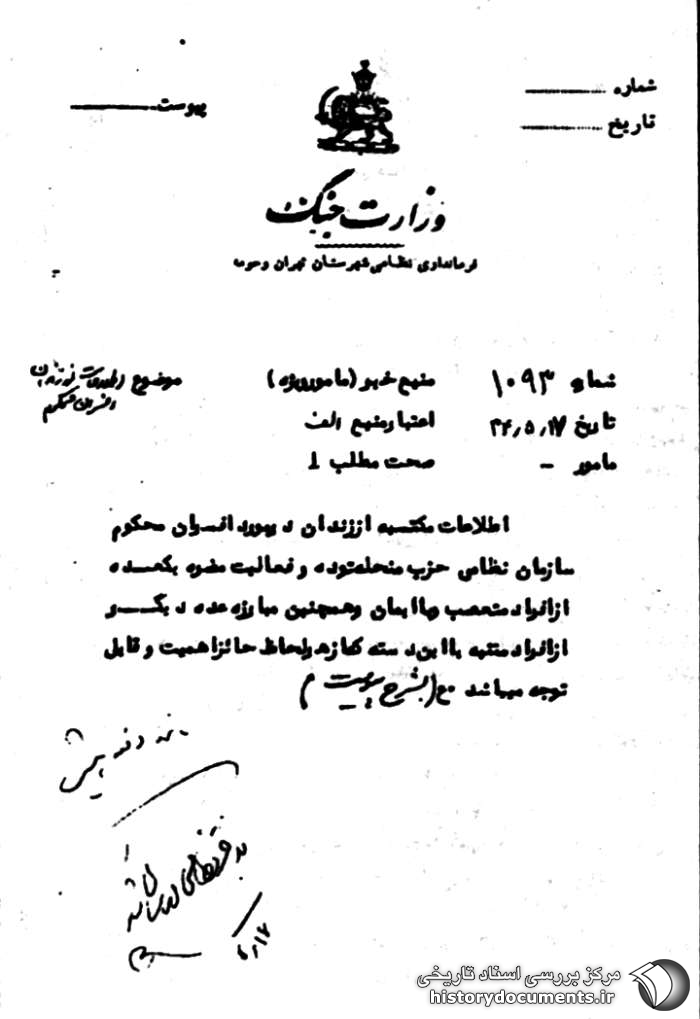 شماره
تاریخ
پیوست
وزارت جنگ
فرمانداری نظامی شهرستان تهران و حومه
شماره ۱۰۹۳
تاریخ ۳۴٫۵٫۱۷
مامور -
منبع خبر (مامور ویژه)
اعتبار منبع الف
صحت مطلب ۱
موضوع اطلاعات از زندان
افسران محکوم
اطلاعات مکتسبه از زندان در مورد افسران محکوم
سازمان نظامی حزب منحله توده و فعالیت مضره یکعده
از افراد متعصب و باایمان و همچنین مبارزه عده دیگر
از افراد متنبه با این دسته که از هر لحاظ حائز اهمیت و قابل
توجه میباشد مع (بشرح پیوست)
مرکز بررسی اسناد تاریخی
historydocuments.ir